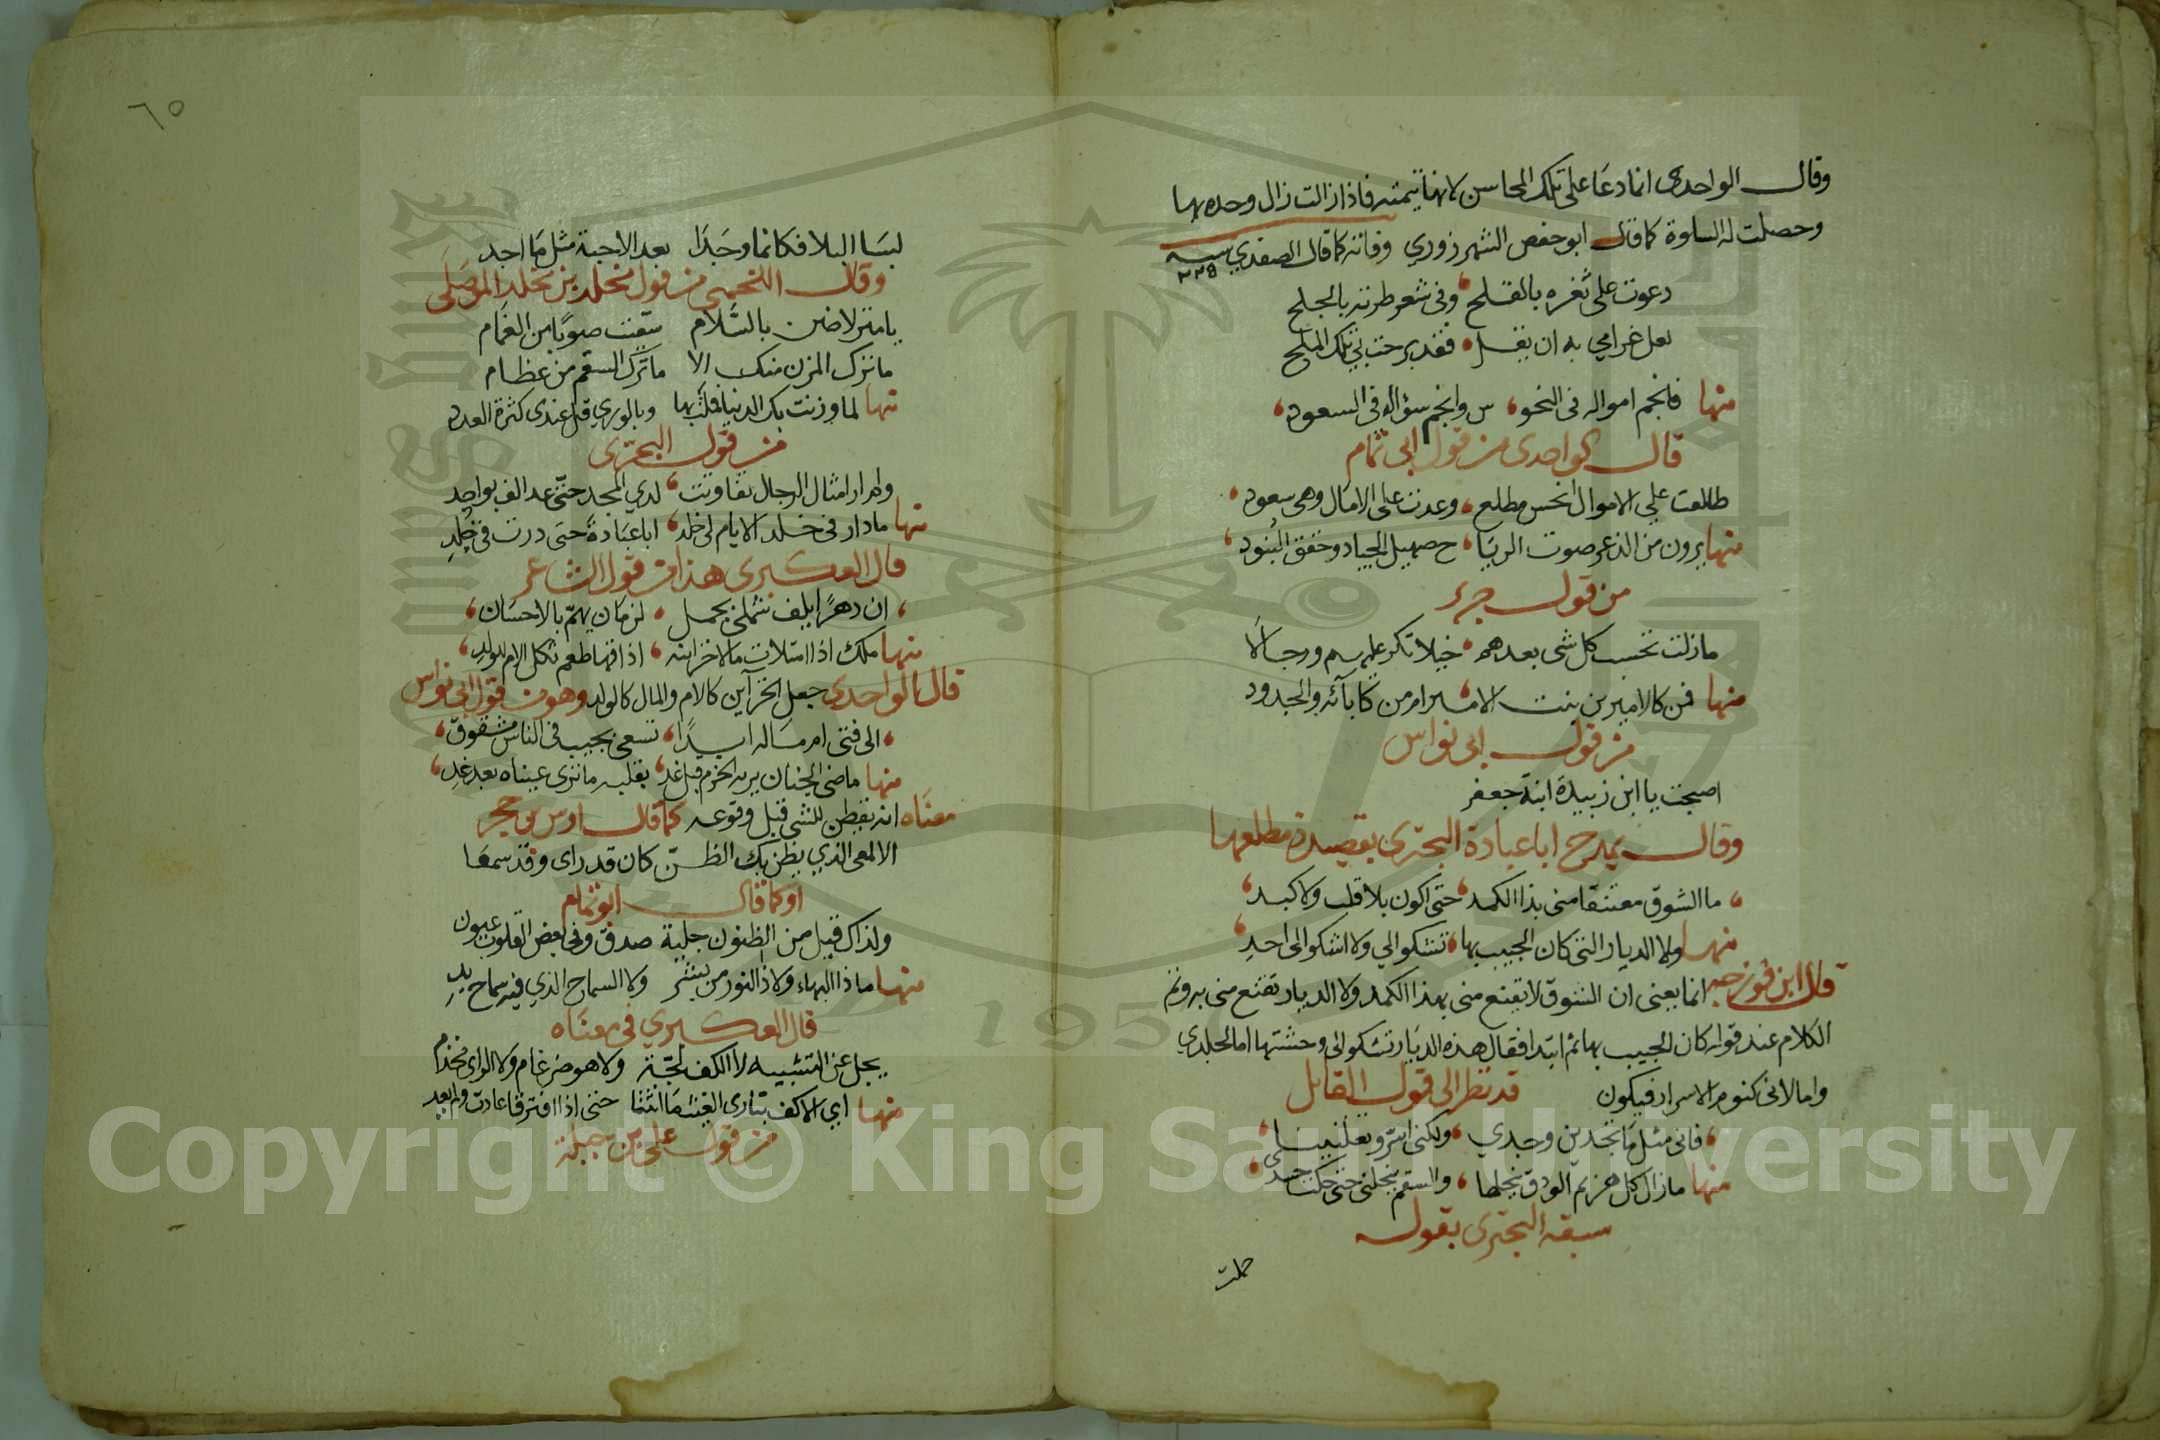 وقال الواحدى انما دعا على تلك المحاسن لانها تيمته فاذا زالت زال وحده بها
وحصلت له السلوة كما قال ابو حفص الشهرزوري وفاته كما قال الصفدي سنه
٢٢٥
دعوت على ثغره بالقلح وفى شعر طرته بالجلح
لعل غرامي به ان يقل فقد برحت بي تلك الملح
منها فانجم امواله فى النحو س وانجم سؤاله فى السعود
قال الواحدى من قول ابى تمام
طلعت على الاموال انحس مطلع وغدت على الامال وهى سعود
منها يرون من الذعر صوت الريا ح صهيل الجياد وخفق البنود
من قول جرير
مازلت تحسب كل شى بعدهم خيلا تكر عليهم ورجالا
منها فمن كالامير بن بنت الامير ام من كابآئه والجدود
من قول ابى نواس
اصبحت يا ابن زبيدة ابنة جعفر
وقال يمدح ابا عبادة البحترى بقصيدة مطلعها
ما الشوق مقتنعا منى بذا الكمد حتى اكون بلا قلب ولا كبد
منها ولا الديار التى كان الحبيب بها تشكو الي ولا اشكو الى احد
قال ابن فورجه انما يعنى ان الشوق لا يقنع منى بهذا الكمد ولا الديار تقنع منى به وتم
الكلام عند قوله كان الحبيب بها ثم ابتدا فقال هذه الديار تشكو الى وحشتها اما لجلدي
واما لانى كتوم الاسرار فيكون قد نظر الى قول القائل
فانى مثل ما تجدين وجدي ولكنى اسر وتعلنينا
منها مازال كل هزيم الودق ينحلها والسقم ينحلنى حتى حكت جسدى
سبقه البحترى بقول
حملت
٦٥
لبسا البلا فكانما وجدا بعد الاحبة مثل ما اجد
وقال اللخمى من قول مخلد بن مخلد الموصلى
يا منزلا ضن بالسلام سقيت صوبا من الغمام
ما ترك المزن منك الا ما ترك السقم من عظام
منها لما وزنت بك الدنيا فملت بها وبالوري قل عندى كثرة العدد
من قول البحترى
ولم ار امثال الرجال تفاوتت لدي المجد حتى عد الف بواحد
منها ما دار فى خلد الايام لى خلد ابا عبادة حتى درت فى خلد
قال العكبرى هذا من قول الشاعر
ان دهرا يلف شملى بجمل لزمان يهم بالاحسان
منها ملك اذا امتلات مالا خزاينه اذاقها طعم ثكل الام للولد
قال الواحدى جعل الخزآين كالام والمال كالولد وهو من قول ابى نواس
الى فتى ام ماله ابدا تسعى بجيب فى الناس مشقوق
منها ماضى الجنان يريه الحزم قبل غد بقلبه ما ترى عيناه بعد غد
معناه انه يفطن للشى قبل وقوعه كما قال اوس بن حجر
الالمعى الذي يظن بك الظن كان قد راى وقد سمعا
او كما قال ابو تمام
ولذاك قيل من الظنون جلية صدق وفى بعض القلوب عيون
منها ماذا البهاء ولا ذا النور من بشر ولا السماح الذي فيه سماح يد
قال العكبري فى معناه
يجل عن التشبيه لا الكف لجة ولا هو ضرغام ولا الراى مخذم
منها اي الاكف تبارى الغيث ما اتفقا حتى اذا افترقا عادت ولم يعد
من قول على بن جبلة
Copyright © King Saud University
195